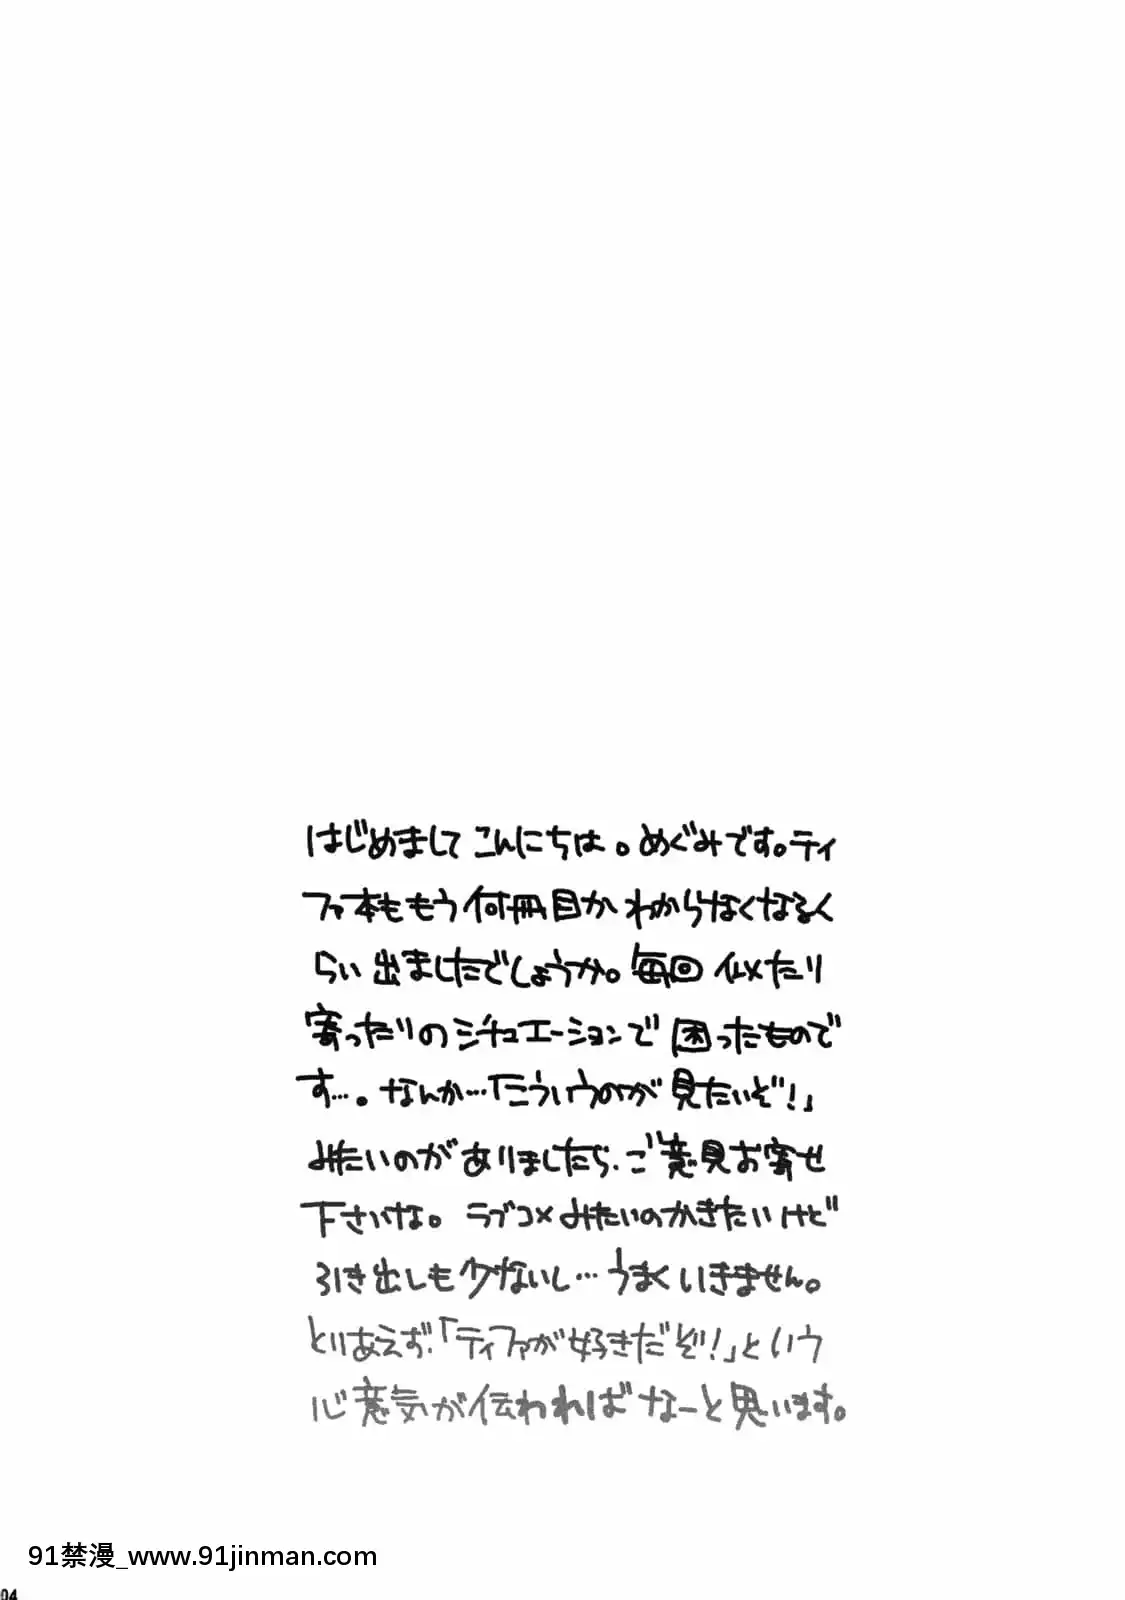 はじめまして こんにちは。めぐみです。ティ
ファ本ももう何冊目かわからなくなるく
らい出ましたでしょうか。毎回似たり
寄ったりのシチュエーションで困ったもので
す…。なんか…「こういうのが見たいぞ!」
みたいのがありましたら、ご意見お寄せ
下さいな。ラブコメみたいのかきたいけど
引き出しも少ないし…うまくいきません。
とりあえず、「ティファが好きだぞ!」という
心意気が伝わればなーと思います。
91禁漫_www.91jinman.com
04